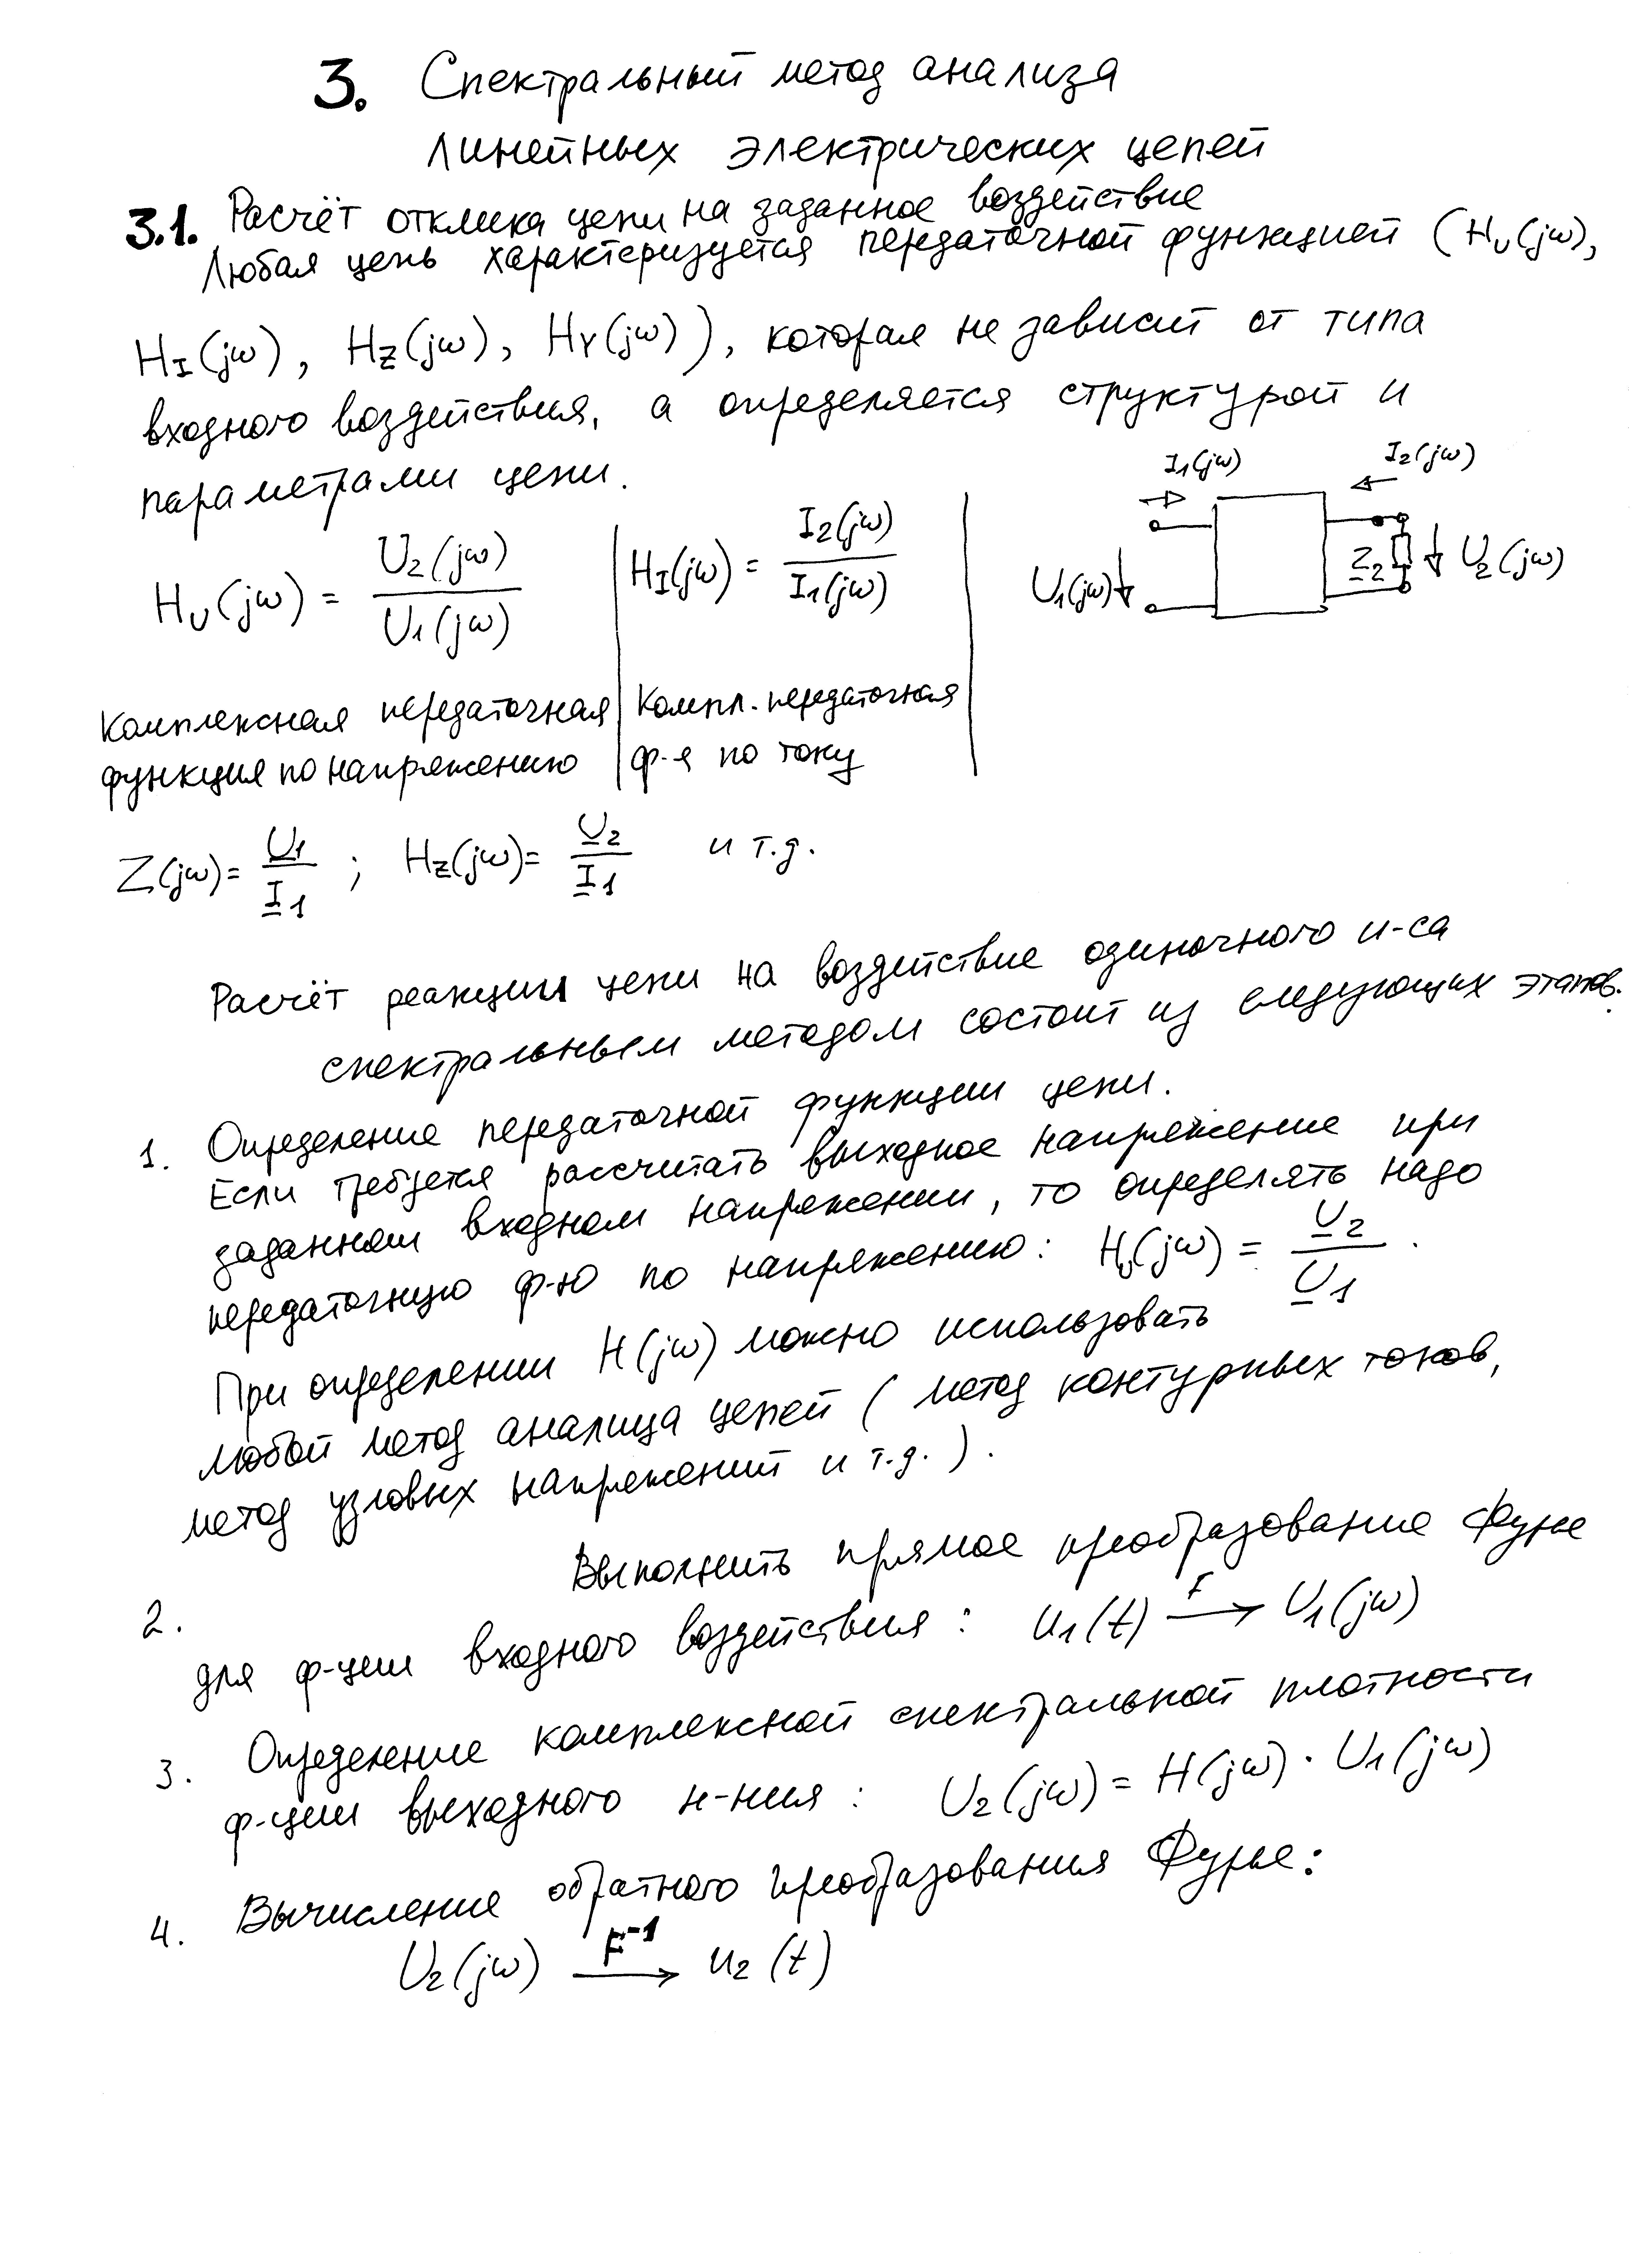 3. Спектральный метод анализа
линейных электрических цепей
3.1. Расчёт отклика цепи на заданное воздействие
Любая цепь характеризуется передаточной функцией (H_U(jω),
H_I(jω), H_Z(jω), H_Y(jω)), которая не зависит от типа
входного воздействия, а определяется структурой и
параметрами цепи.
I1(jω) I2(jω)
H_U(jω) = U2(jω) / U1(jω) | H_I(jω) = I2(jω) / I1(jω) | U1(jω) Z2 U2(jω)
Комплексная передаточная | Компл. передаточная
функция по напряжению | ф-я по току
Z(jω) = U1 / I1 ; H_Z(jω) = U2 / I1 и т.д.
Расчёт реакции цепи на воздействие одиночного и-са
спектральным методом состоит из следующих этапов.
1. Определение передаточной функции цепи.
Если требуется рассчитать выходное напряжение при
заданном входном напряжении, то определять надо
передаточную ф-ю по напряжению: H_U(jω) = U2 / U1.
При определении H(jω) можно использовать
любой метод анализа цепей (метод контурных токов,
метод узловых напряжений и т.д.).
2. Выполнить прямое преобразование Фурье
для ф-ции входного воздействия: u1(t) F→ U1(jω)
3. Определение комплексной спектральной плотности
ф-ции выходного н-ния: U2(jω) = H(jω) · U1(jω)
4. Вычисление обратного преобразования Фурье:
U2(jω) F⁻¹→ u2(t)